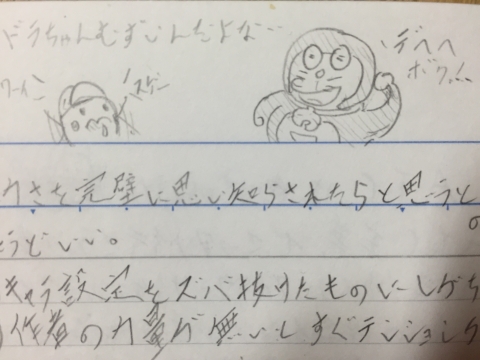 ドラちゃんむずいんだよな…
デヘヘ
ボク…
ワーイ
スゲー
わさを完璧に思い知らされたらと思うと
の
ようどいい。
キャラ設定をズバ抜けたものにしすぎ
作者の力量が無いしすぐテンション